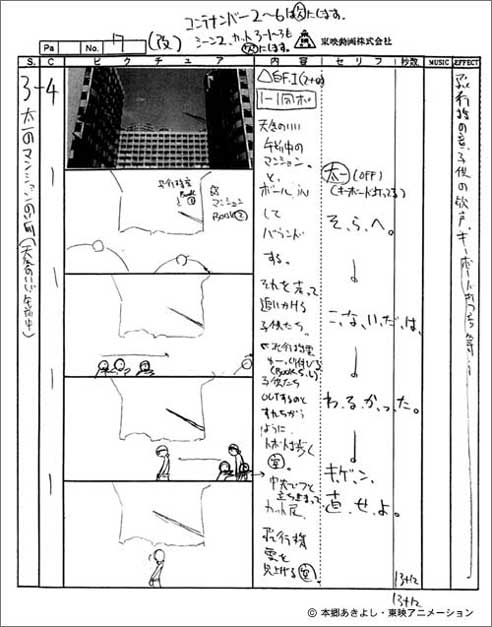 コンテナンバー2〜6は欠にします。
シーン2、カット3-1〜3も
欠にします。
(改)
東映動画株式会社
Pa
No. 7
S.
C
ピクチュア
内容
セリフ
秒数
MUSIC
EFFECT
3-4
太一のマンションの前(天気のいい午前中)
F.I(2+0)
天気のいい
午前中の
マンション。
と、
ボール in
して
バウンド
する。
それを走って
追いかける
子供たち。
飛行機雲
(Book S.L)
子供たち
OUTするのと
すれちがう
ように、
トボトボ歩く
空。
中央でフと
立ち止まって
カット尻、
飛行機
雲を
見上げる空
飛行機雲
Book①
マンション
Book②
太一(OFF)
(キーボード打ってる)
そ、ら、へ。
こ、な、い、だ、は、
わ、る、か、っ、た。
キ、ゲ、ン、
直、せ、よ。
飛行機の音、子供の歓声、キーボードのうつ音 等
13+12
13+12
© 本郷あきよし・東映アニメーション